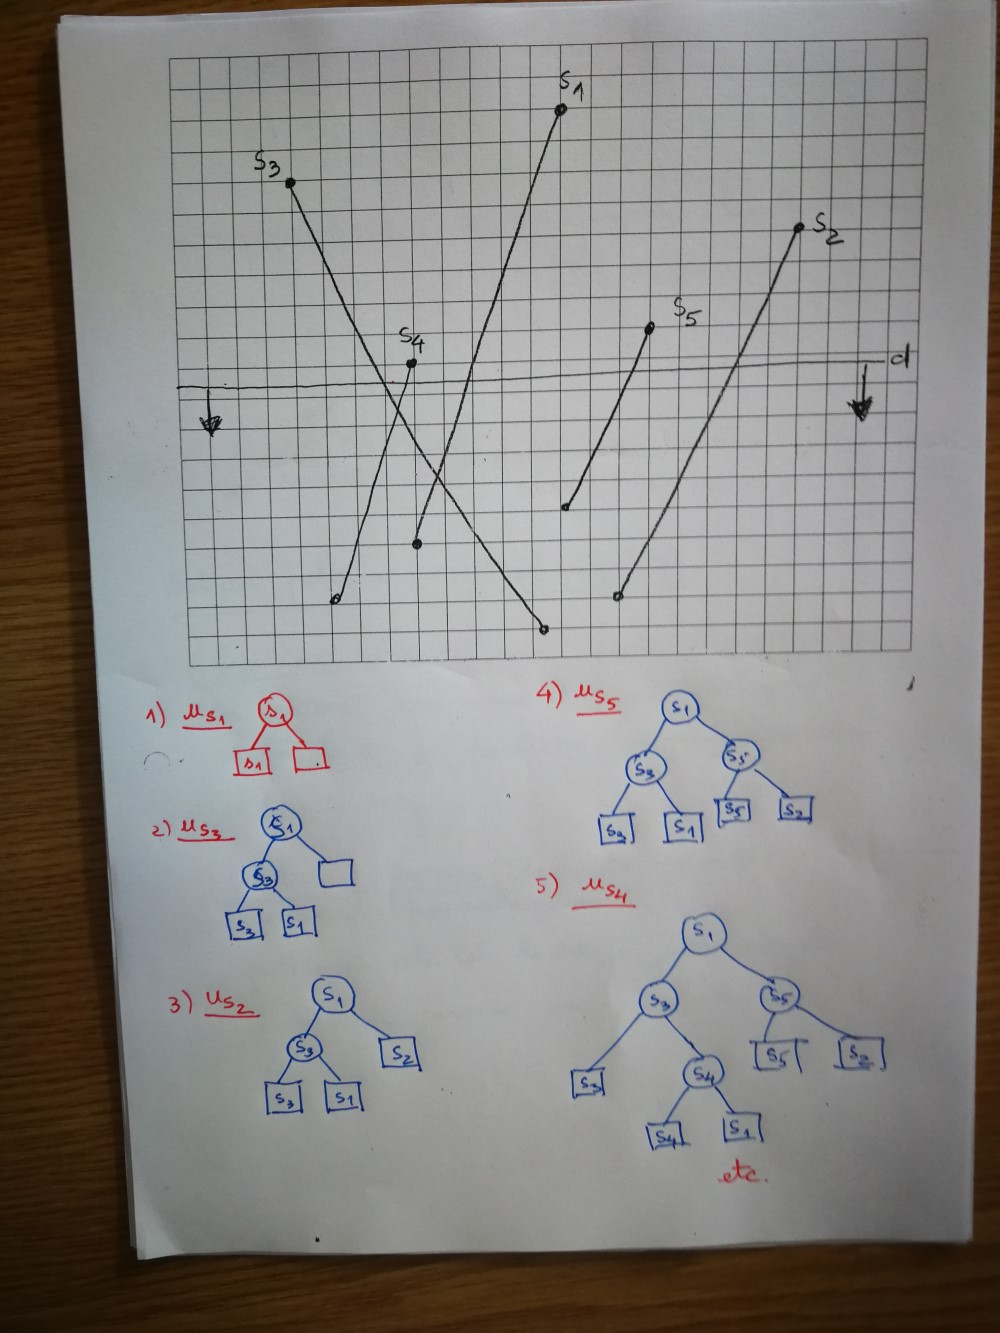 S1
S3
S2
S5
S4
d
1) μs1
s1
s1
2) μs3
S1
S3
S3 S1
3) μs2
S1
S3 S2
S3 S1
4) μs5
S1
S3 S5
S3 S1 S5 S2
5) μs4
S1
S3 S5
S3 S4 S5 S2
S4 S1
etc.